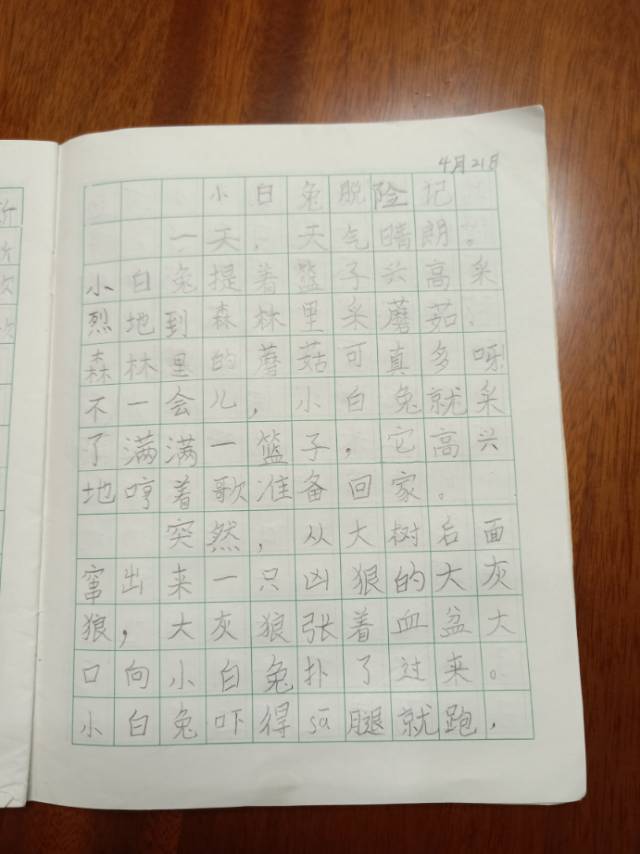 4月21日
小白兔脱险记
一天，天气晴朗。
小白兔提着篮子兴高采
烈地到森林里采蘑菇，
森林里的蘑菇可真多呀！
不一会儿，小白兔就采
了满满一篮子，它高兴
地哼着歌准备回家。
突然，从大树后面
窜出来一只凶狼的大灰
狼，大灰狼张着血盆大
口向小白兔扑了过来。
小白兔吓得sā腿就跑，